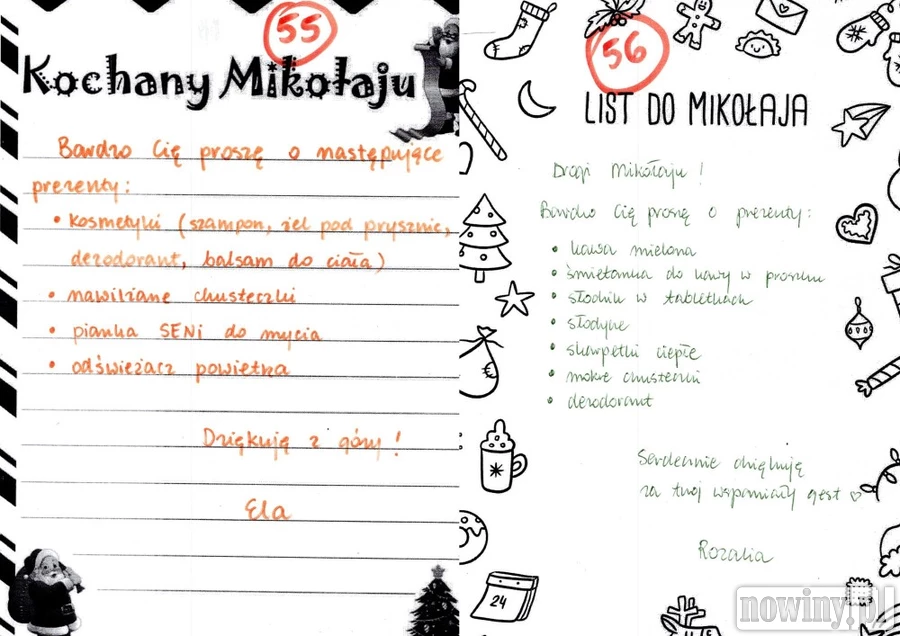 55
Kochany Mikołaju
Bardzo Cię proszę o następujące
prezenty:
• kosmetyki (szampon, żel pod prysznic,
dezodorant, balsam do ciała)
• nawilżane chusteczki
• pianka SENI do mycia
• odświeżacz powietrza
Dziękuję z góry!
Ela
56
LIST DO MIKOŁAJA
Drogi Mikołaju!
Bardzo Cię proszę o prezenty:
• kawa mielona
• śmietanka do kawy w proszku
• słodzik w tabletkach
• słodycze
• skarpetki ciepłe
• mokre chusteczki
• dezodorant
Serdecznie dziękuję
za twój wspaniały gest ♡
Rozalia
24
nowiny.pl